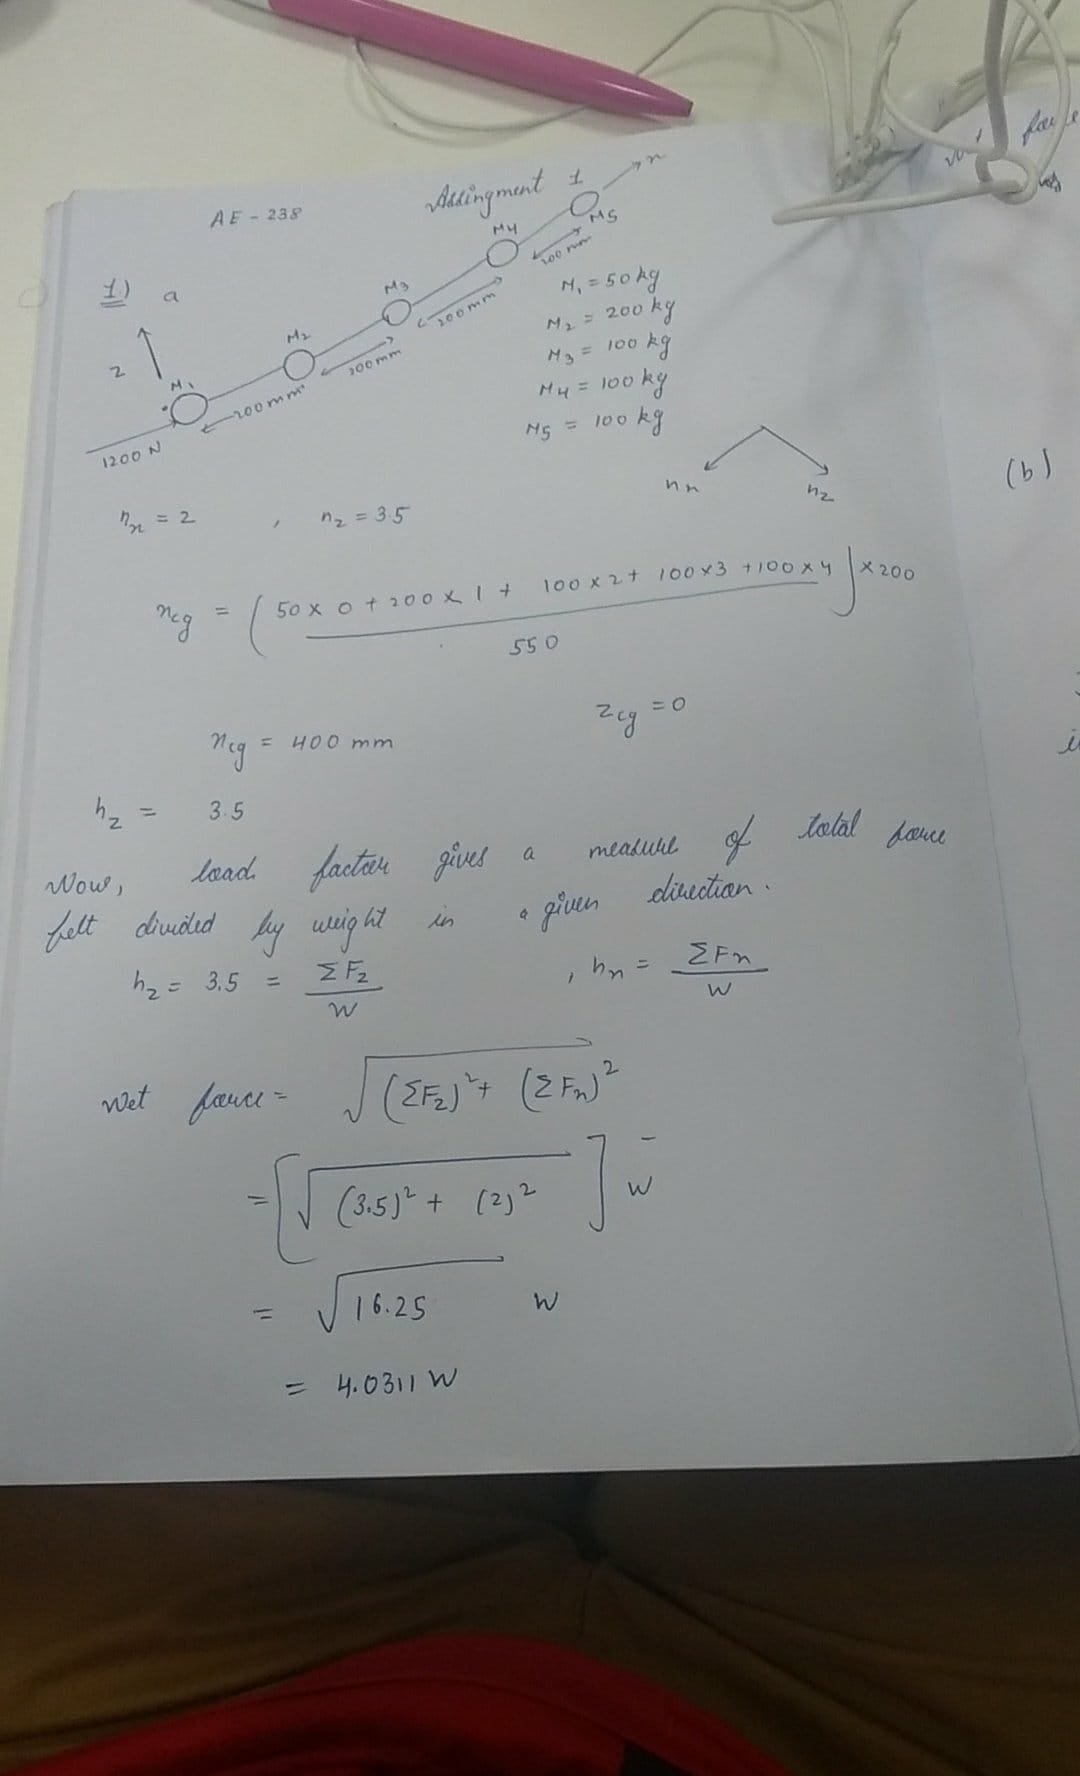 AE - 238
Assingment 1
1) a
z
n
M1
M2
M3
M4
M5
1200 N
200 mm
200 mm
200 mm
200 mm
M1 = 50 kg
M2 = 200 kg
M3 = 100 kg
M4 = 100 kg
M5 = 100 kg
nn nz
(b)
nn = 2 , nz = 3.5
ncg = ( 50 x 0 + 200 x 1 + 100 x 2 + 100 x 3 + 100 x 4 ) x 200
550
ncg = 400 mm zcg = 0
nz = 3.5
Now, load factor gives a measure of total force
felt divided by weight in a given direction.
nz = 3.5 = ΣFz / W , nn = ΣFn / W
Net force = √(ΣFz)² + (ΣFn)²
= [√(3.5)² + (2)²] W
= √16.25 W
= 4.0311 W